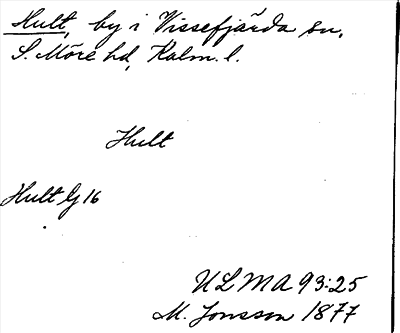 Hult, by i Vissefjärda sn,
S. Möre hd, Kalm. l.
Hult
Hult G 16
ULMA 93:25
M. Jonsson 1877